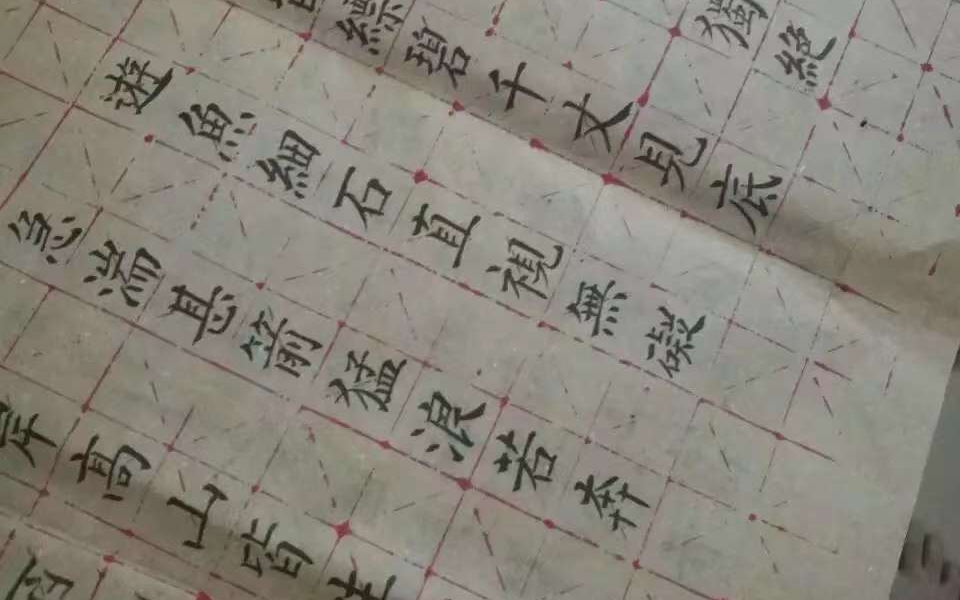 獨絕
縹碧千丈見底
遊魚細石直視無礙
急湍甚箭猛浪若奔
岸高山皆生